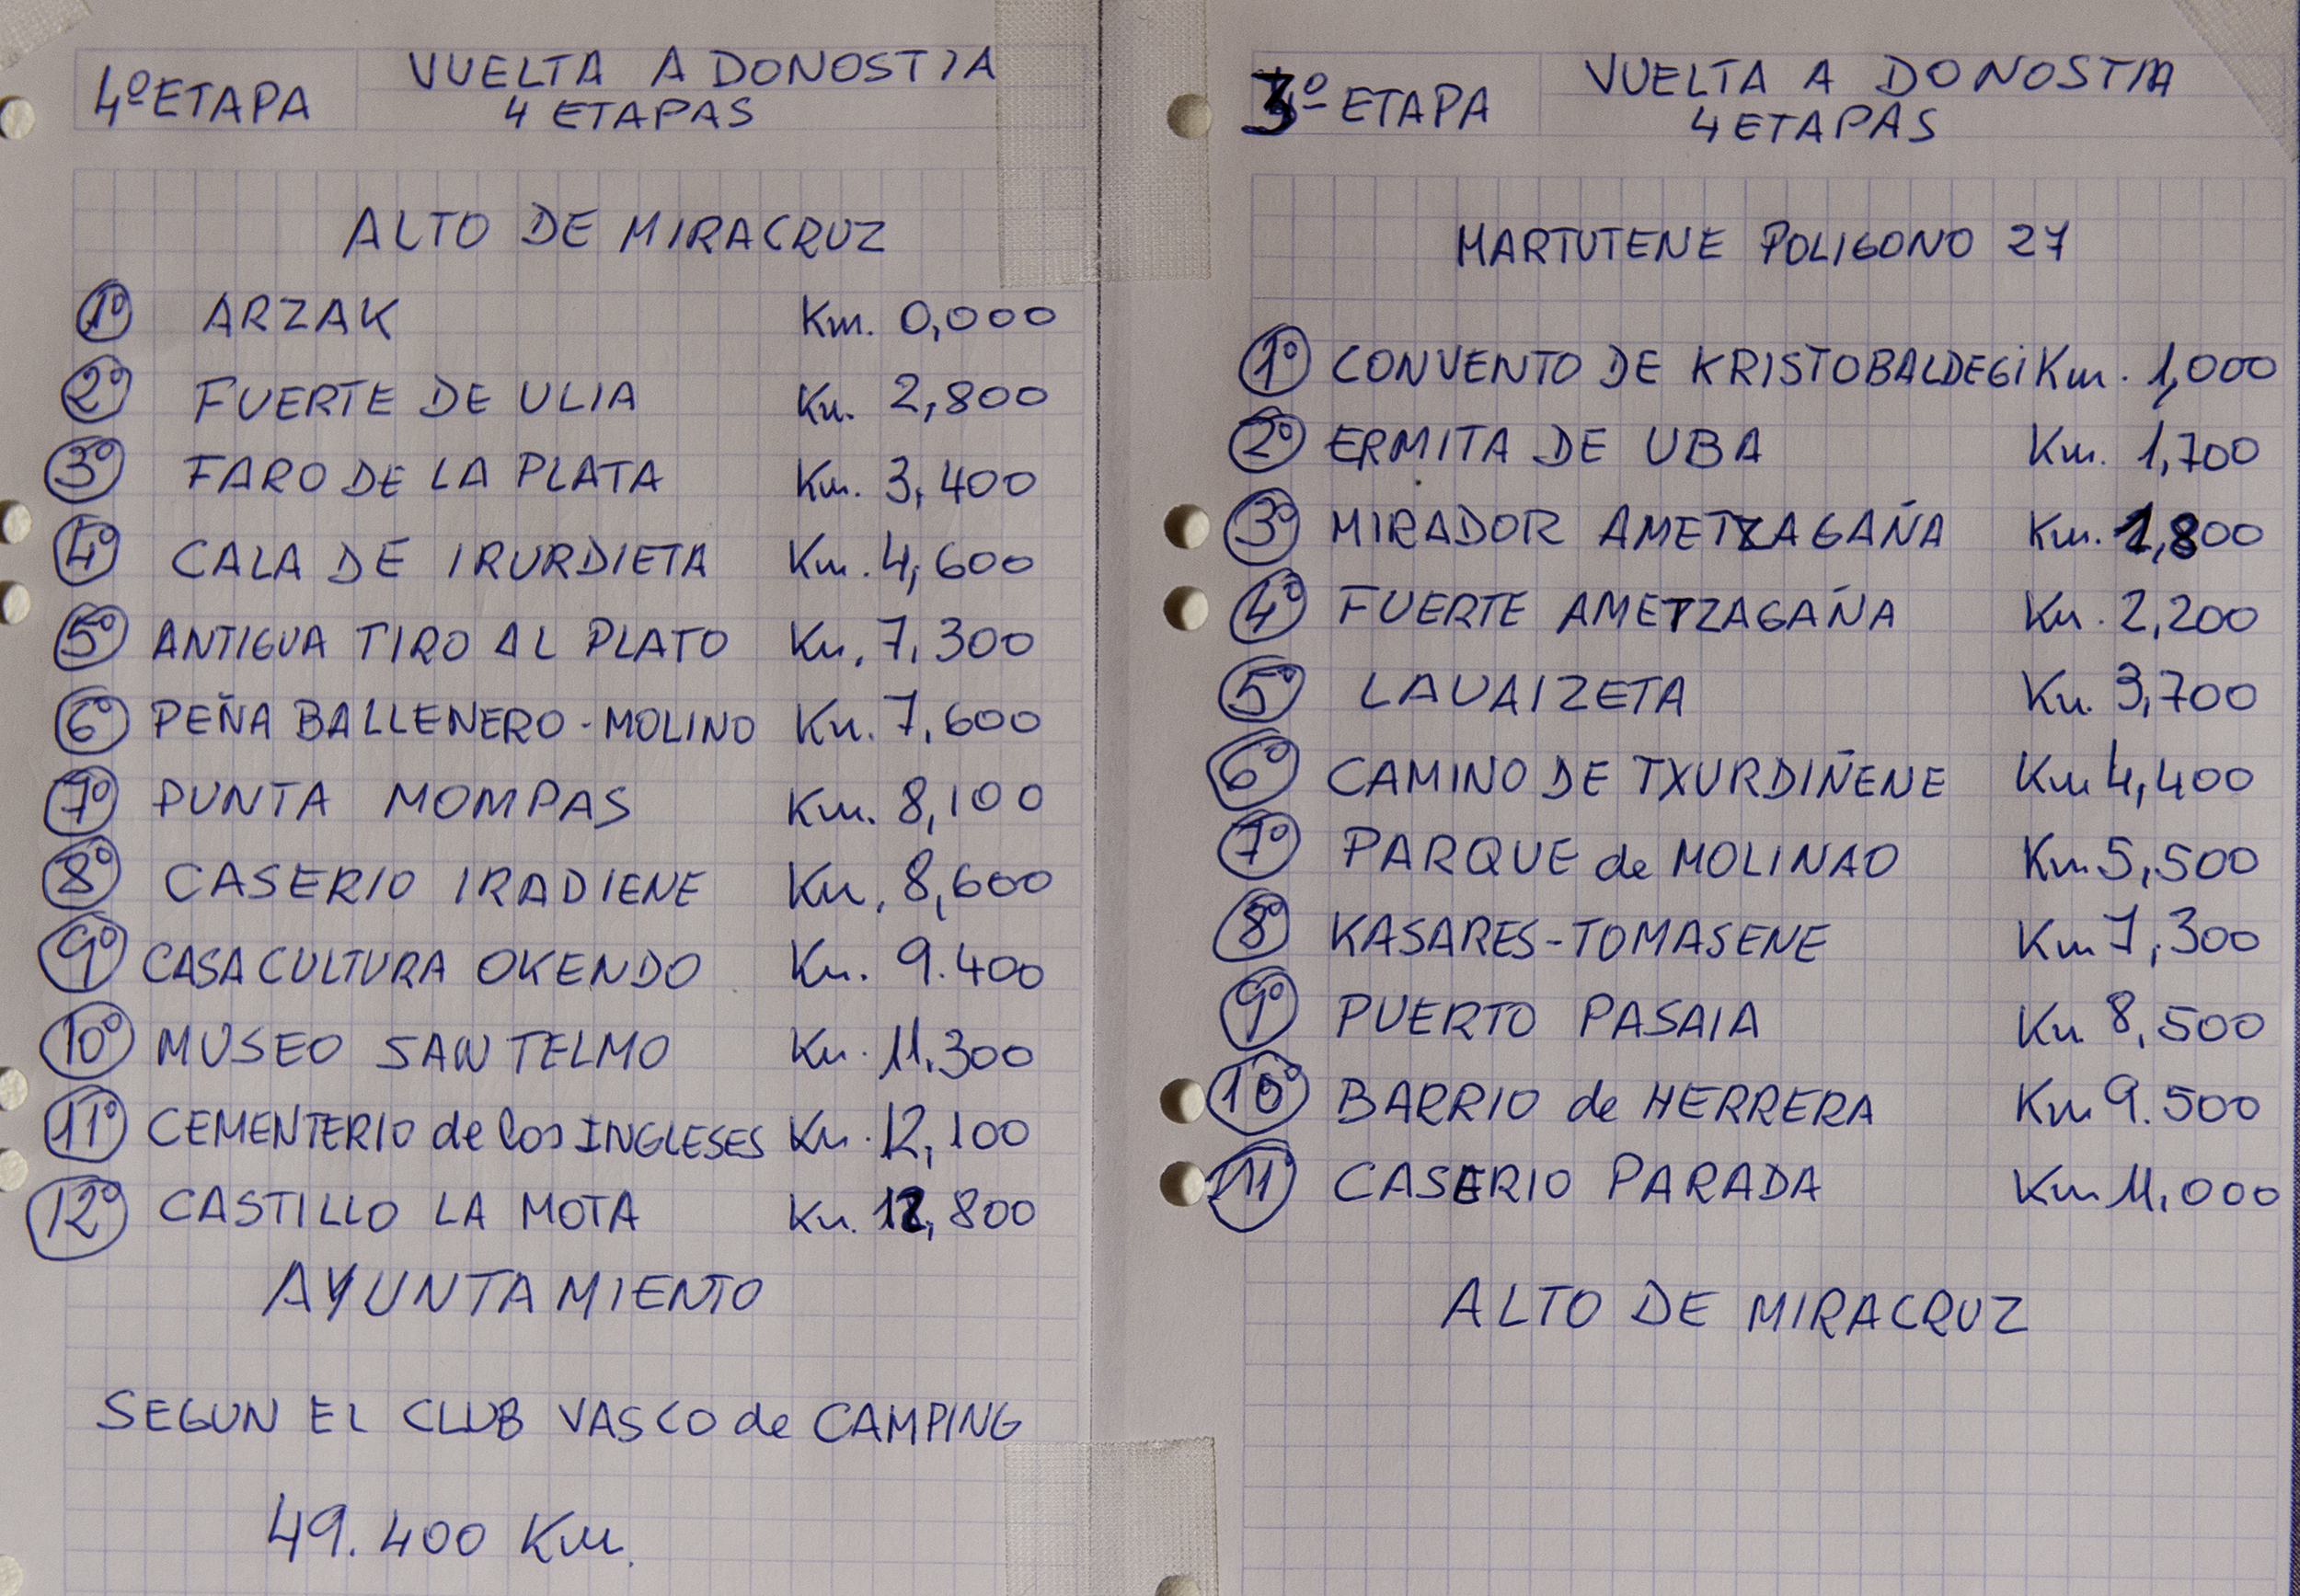 4º ETAPA
VUELTA A DONOSTIA
4 ETAPAS
ALTO DE MIRACRUZ
1º ARZAK Km. 0,000
2º FUERTE DE ULIA Km. 2,800
3º FARO DE LA PLATA Km. 3,400
4º CALA DE IRURDIETA Km. 4,600
5º ANTIGUA TIRO AL PLATO Km. 7,300
6º PEÑA BALLENERO - MOLINO Km. 7,600
7º PUNTA MOMPAS Km. 8,100
8º CASERIO IRADIENE Km. 8,600
9º CASA CULTURA OKENDO Km. 9.400
10º MUSEO SAN TELMO Km. 11.300
11º CEMENTERIO de los INGLESES Km. 12,100
12º CASTILLO LA MOTA Km. 12,800
AYUNTAMIENTO
SEGUN EL CLUB VASCO de CAMPING
49.400 Km.
3º ETAPA
VUELTA A DONOSTIA
4 ETAPAS
MARTUTENE POLIGONO 27
1º CONVENTO DE KRISTOBALDEGi Km. 1,000
2º ERMITA DE UBA Km. 1,700
3º MIRADOR AMETZAGAÑA Km. 1,800
4º FUERTE AMETZAGAÑA Km. 2,200
5º LAUAIZETA Km. 3,700
6º CAMINO DE TXURDIÑENE Km 4,400
7º PARQUE de MOLINAO Km 5,500
8º KASARES-TOMASENE Km 7,300
9º PUERTO PASAIA Km 8,500
10º BARRIO de HERRERA Km 9.500
11º CASERIO PARADA Km 11,000
ALTO DE MIRACRUZ